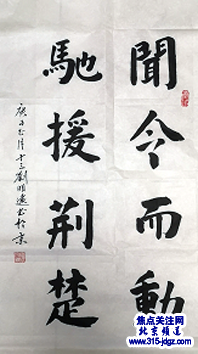 聞令而動
馳援荆楚
庚子正月十三劉明遠書於京
焦点关注网
北京频道
www.315-jdgz.cn